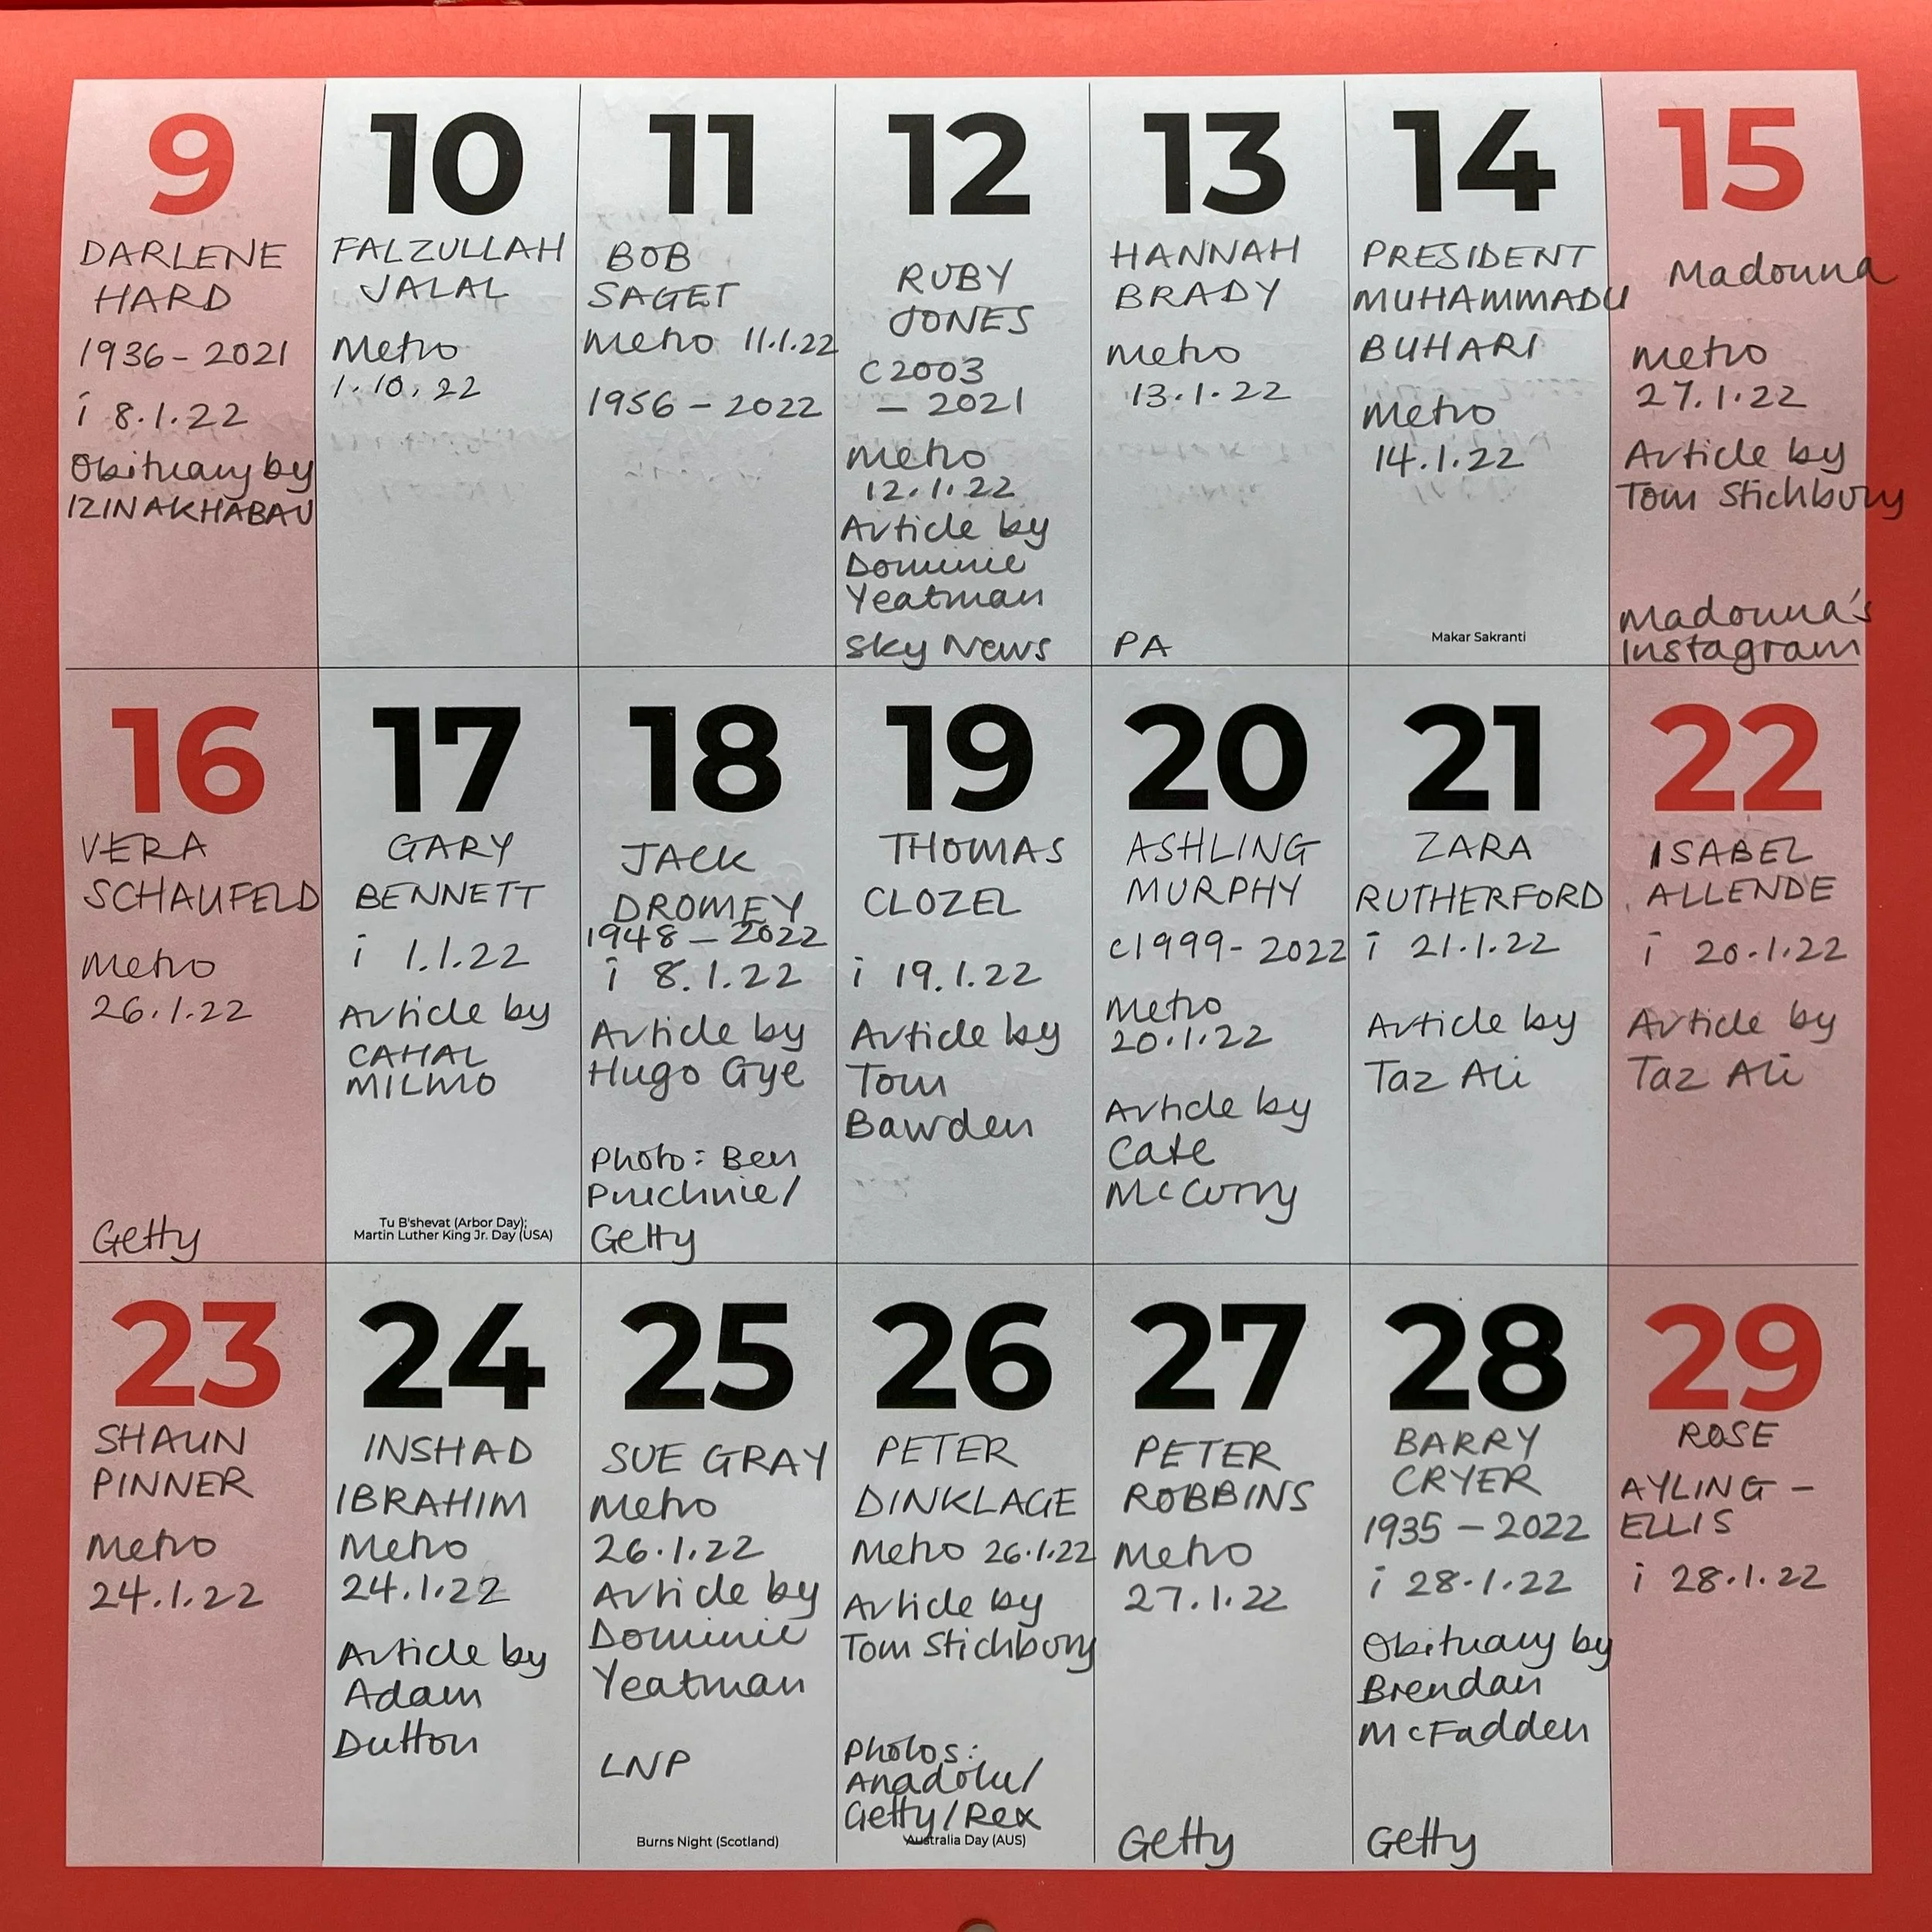 9
DARLENE
HARD
1936-2021
i 8.1.22
Obituary by
IZIN AKHABAU
10
FALZULLAH
JALAL
Metro
1.10.22
11
BOB
SAGET
Metro 11.1.22
1956-2022
12
RUBY
JONES
c2003
- 2021
Metro
12.1.22
Article by
Dominic
Yeatman
Sky News
13
HANNAH
BRADY
Metro
13.1.22
PA
14
PRESIDENT
MUHAMMADU
BUHARI
Metro
14.1.22
Makar Sakranti
15
Madonna
Metro
27.1.22
Article by
Tom Stichbury
Madonna's
Instagram
16
VERA
SCHAUFELD
Metro
26.1.22
Getty
17
GARY
BENNETT
i 1.1.22
Article by
CAHAL
MILMO
Tu B'shevat (Arbor Day);
Martin Luther King Jr. Day (USA)
18
JACK
DROMEY
1948-2022
i 8.1.22
Article by
Hugo Gye
Photo: Ben
Getty
19
THOMAS
CLOZEL
i 19.1.22
Article by
Tom
Bawden
20
ASHLING
MURPHY
c1999-2022
Metro
20.1.22
Article by
Cate
McCurry
21
ZARA
RUTHERFORD
i 21.1.22
Article by
Taz Ali
22
ISABEL
ALLENDE
i 20.1.22
Article by
Taz Ali
23
SHAUN
PINNER
Metro
24.1.22
24
INSHAD
IBRAHIM
Metro
24.1.22
Article by
Adam
Dutton
25
SUE GRAY
Metro
26.1.22
Article by
Dominic
Yeatman
LNP
Burns Night (Scotland)
26
PETER
DINKLAGE
Metro 26.1.22
Article by
Tom Stichbury
Photos:
Anadolu/
Getty/Rex
Australia Day (AUS)
27
PETER
ROBBINS
Metro
27.1.22
Getty
28
BARRY
CRYER
1935-2022
i 28.1.22
Obituary by
Brendan
McFadden
Getty
29
ROSE
AYLING-
ELLIS
i 28.1.22